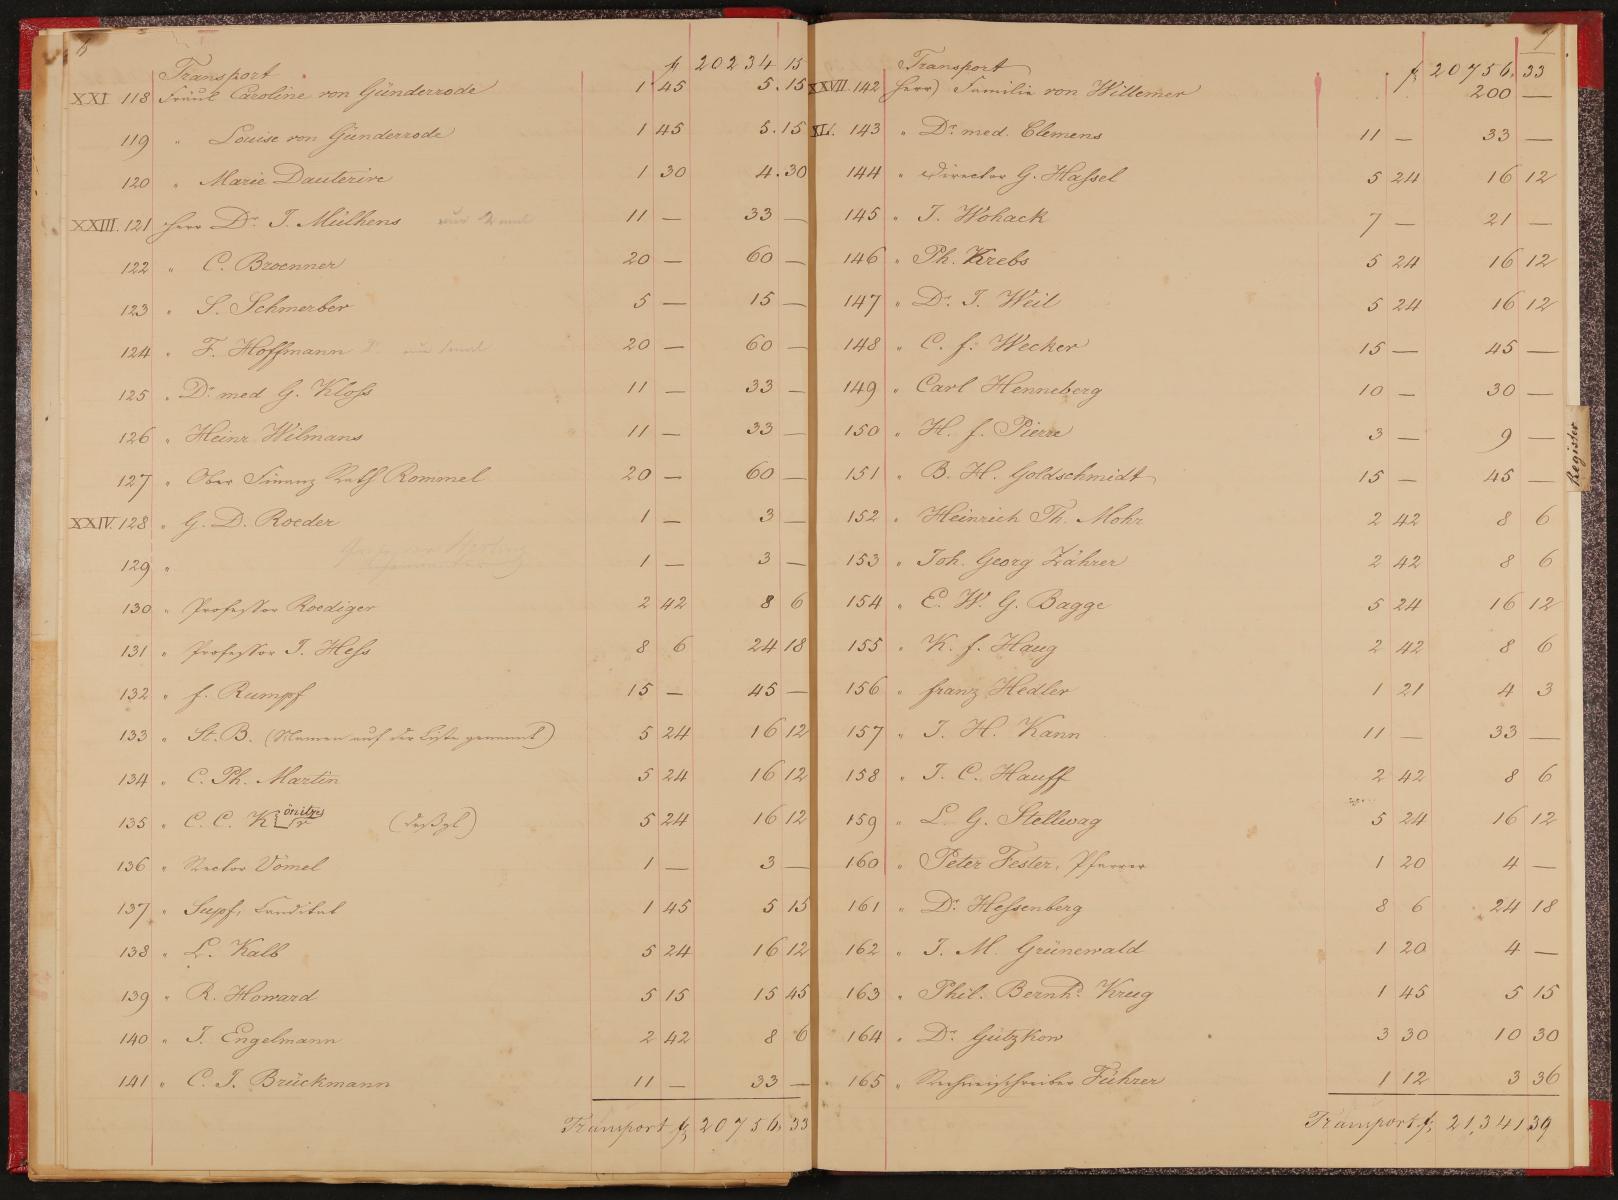 6
Transport f 20234 15
XXI 118 Fräul. Caroline von Günderrode 1 45 5.15
119 " Louise von Günderrode 1 45 5.15
120 " Marie Dauterive 1 30 4.30
XXIII. 121 Herr Dr. J. Mülhens 11 — 33 —
122 " C. Broenner 20 — 60 —
123 " S. Schmerber 5 — 15 —
124 " F. Hoffmann 20 — 60 —
125 " Dr. med G. Kloss 11 — 33 —
126 " Heinr. Wilmans 11 — 33 —
127 " Ober Finanz Rath Rommel 20 — 60 —
XXIV. 128 " G. D. Roeder 1 — 3 —
129 " 1 — 3 —
130 " Professor Roediger 2 42 8 6
131 " Professor J. Hess 8 6 24 18
132 " f. Rumpf 15 — 45 —
133 " St. B. (Namen auf der Liste genannt) 5 24 16 12
134 " C. Ph. Martin 5 24 16 12
135 " C. C. K önitzer (deßgl) 5 24 16 12
136 " Rector Vömel 1 — 3 —
137 " Supf, Candidat 1 45 5 15
138 " L. Kalb 5 24 16 12
139 " R. Howard 5 15 15 45
140 " J. Engelmann 2 42 8 6
141 " C. J. Brückmann 11 — 33 —
Transport f 20756.33
7
Transport f. 20756.33
XXVII. 142 Herr) Familie von Willemer 200 —
XLI. 143 " Dr. med. Clemens 11 — 33 —
144 " Director G. Hassel 5 24 16 12
145 " J. Wohack 7 — 21 —
146 " Ph. Krebs 5 24 16 12
147 " Dr. J. Weil 5 24 16 12
148 " C. f. Wecker 15 — 45 —
149 " Carl Henneberg 10 — 30 —
150 " H. f. Pierre 3 — 9 —
151 " B. H. Goldschmidt 15 — 45 —
152 " Heinrich Th. Mohr 2 42 8 6
153 " Joh. Georg Zährer 2 42 8 6
154 " E. W. G. Bagge 5 24 16 12
155 " K. f. Haug 2 42 8 6
156 " franz Hedler 1 21 4 3
157 " J. H. Kann 11 — 33 —
158 " J. C. Hauff 2 42 8 6
159 " L. G. Stellwag 5 24 16 12
160 " Peter Fester, Pfarrer 1 20 4 —
161 " Dr. Hessenberg 8 6 24 18
162 " J. M. Grünewald 1 20 4 —
163 " Phil. Bernhd. Krug 1 45 5 15
164 " Dr. Gutzkow 3 30 10 30
165 " Rechneischreiber Führer 1 12 3 36
Transport f. 21,341 39
Register